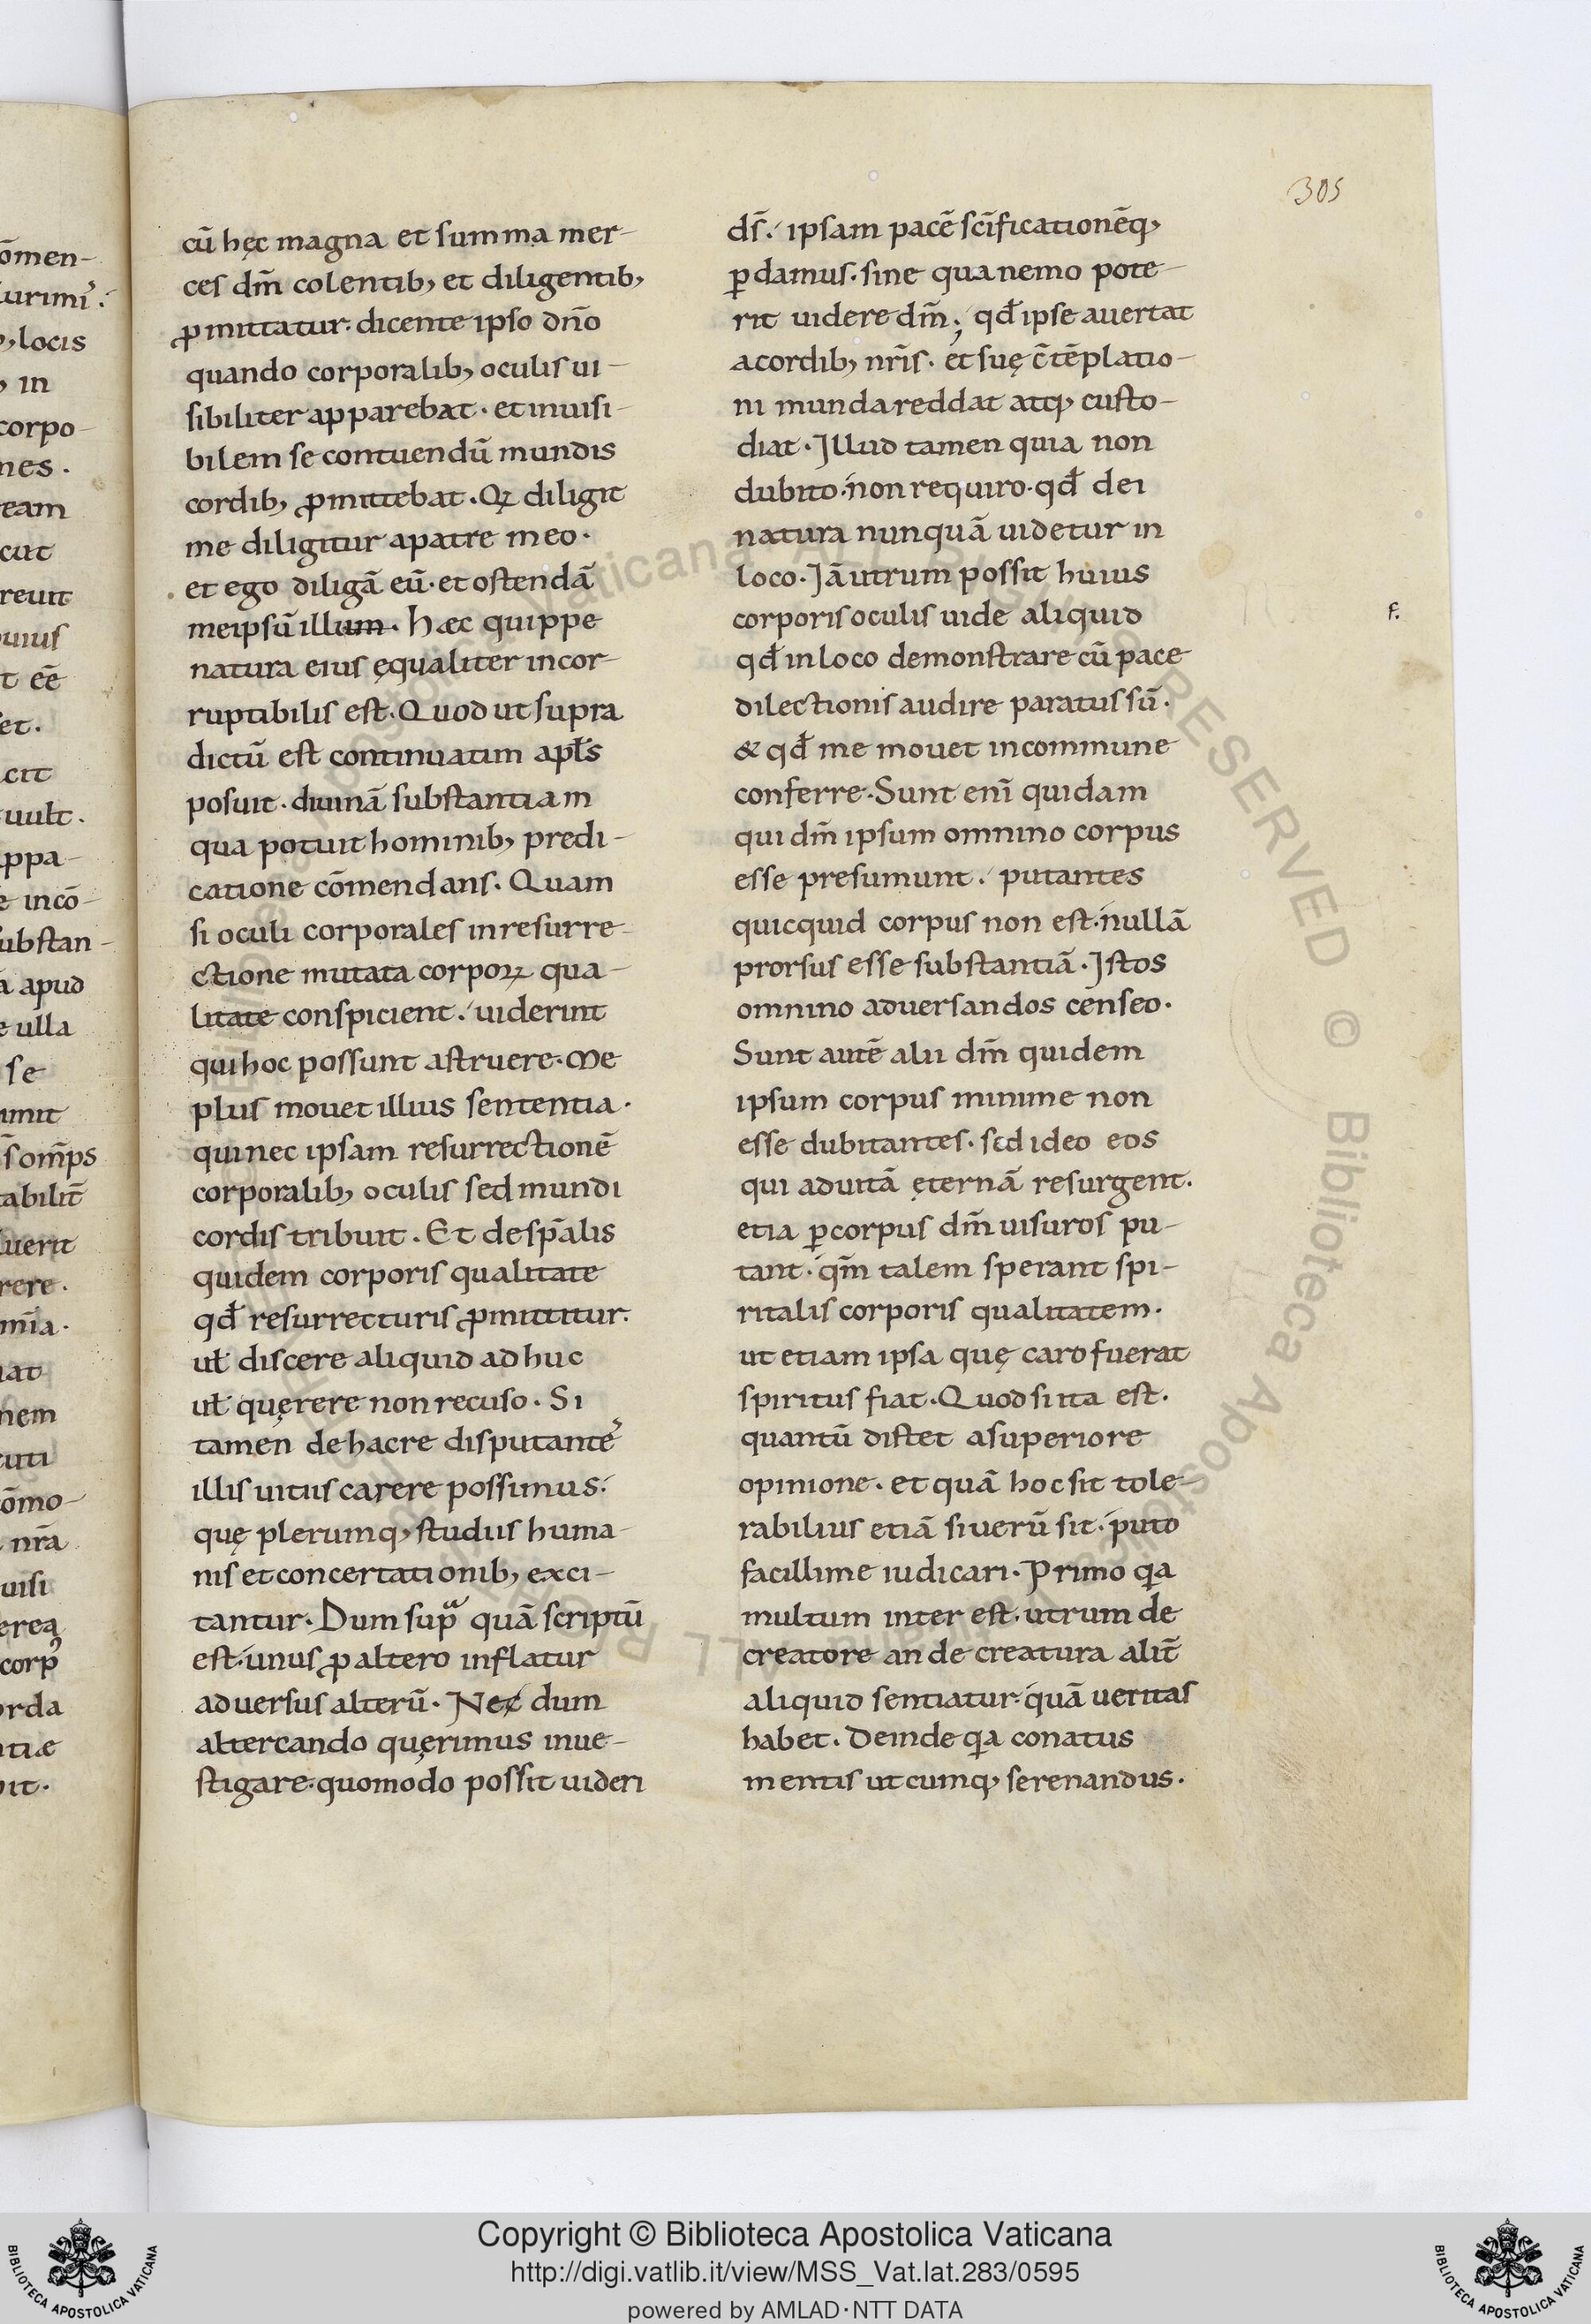 305
cū hęc magna et summa mer-
ces dm̄ colentib; et diligentib;
ꝓmittatur. dicente ipso dn̄o
quando corporalib; oculis ui-
sibiliter apparebat. et inuisi-
bilem se contuendū mundis
cordib; ꝓmittebat. Qꝫ diligit
me diligitur apatre meo.
et ego diligā eū. et ostendā
meipsū illum. Hæc quippe
natura eius ęqualiter incor-
ruptibilis est. Quod ut supra
dictū est continuatim apłs
posuit. diuinā substantiam
qua potuit hominib; predi-
catione cōmendans. Quam
si oculi corporales inresurre-
ctione mutata corpoꝝ qua-
litate conspicient. uiderint
quihoc possunt astruere. Me
plus mouet illius sententia.
quinec ipsam resurrectionē
corporalib; oculis sed mundi
cordis tribuit. Et de sp̄alis
quidem corporis qualitate
qđ resurrecturis ꝓmittitur.
uł discere aliquid ad huc
uł quęrere non recuso. Si
tamen dehacre disputante᷒
illis uitiis carere possimus.
quę plerumq; studiis huma-
nis et concertationib; exci-
tantur. Dum supͣ quā scriptū
est. unus ꝓ altero inflatur
aduersus alterū. Nec dum
altercando quęrimus inue-
stigare. quomodo possit uideri
ds̄. ipsam pacē scīficationēq;
ꝑdamus. sine qua nemo pote-
rit uidere dm̄; qđ ipse auertat
acordib; nr̄is. et suę c̄tēplatio-
ni munda reddat atq; custo-
diat. Illud tamen quia non
dubito. non requiro. qđ dei
natura nunquā uidetur in
loco. Iā utrum possit huius
corporis oculis uide aliquid
qđ inloco demonstrare cū pace
dilectionis audire paratus sū.
& qđ me mouet incommune
conferre. Sunt enī quidam
qui dm̄ ipsum omnino corpus
esse presumunt. putantes
quicquid corpus non est. nullā
prorsus esse substantiā. Istos
omnino aduersandos censeo.
Sunt autē alii dm̄ quidem
ipsum corpus minime non
esse dubitantes. sed ideo eos
qui aduitā ęternā resurgent.
etia ꝑ corpus dm̄ uisuros pu-
tant. qm̄ talem sperant spi-
ritalis corporis qualitatem.
ut etiam ipsa quę caro fuerat
spiritus fiat. Quod si ita est.
quantū distet asuperiore
opinione. et quā hoc sit tole-
rabilius etiā si uerū sit. puto
facillime iudicari. Primo qa
multum inter est. utrum de
creatore an de creatura alit̄
aliquid sentiatur. quā ueritas
habet. Deinde qa conatus
mentis utcumq; serenandus.
f.
Copyright © Biblioteca Apostolica Vaticana
http://digi.vatlib.it/view/MSS_Vat.lat.283/0595
powered by AMLAD·NTT DATA
BIBLIOTECA APOSTOLICA VATICANA
BIBLIOTECA APOSTOLICA VATICANA